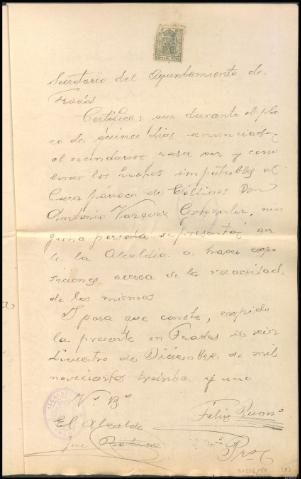 Secretario del Ayuntamiento de
Frades
Certifico: que durante el pla
zo de quince dias anunciados
al vecindario para oir y
los hechos imputables al
Cura párroco de Céltigos Don
Antonio Vazquez nin
guna persona se presentó an
te la Alcaldia a hacer expo
siciones acerca de la veracidad
de los mismos
Y para que conste, expido
la presente en Frades a vein
ticuatro de Diciembre de mil
novecientos treinta y uno
Vº Bº
El Alcalde